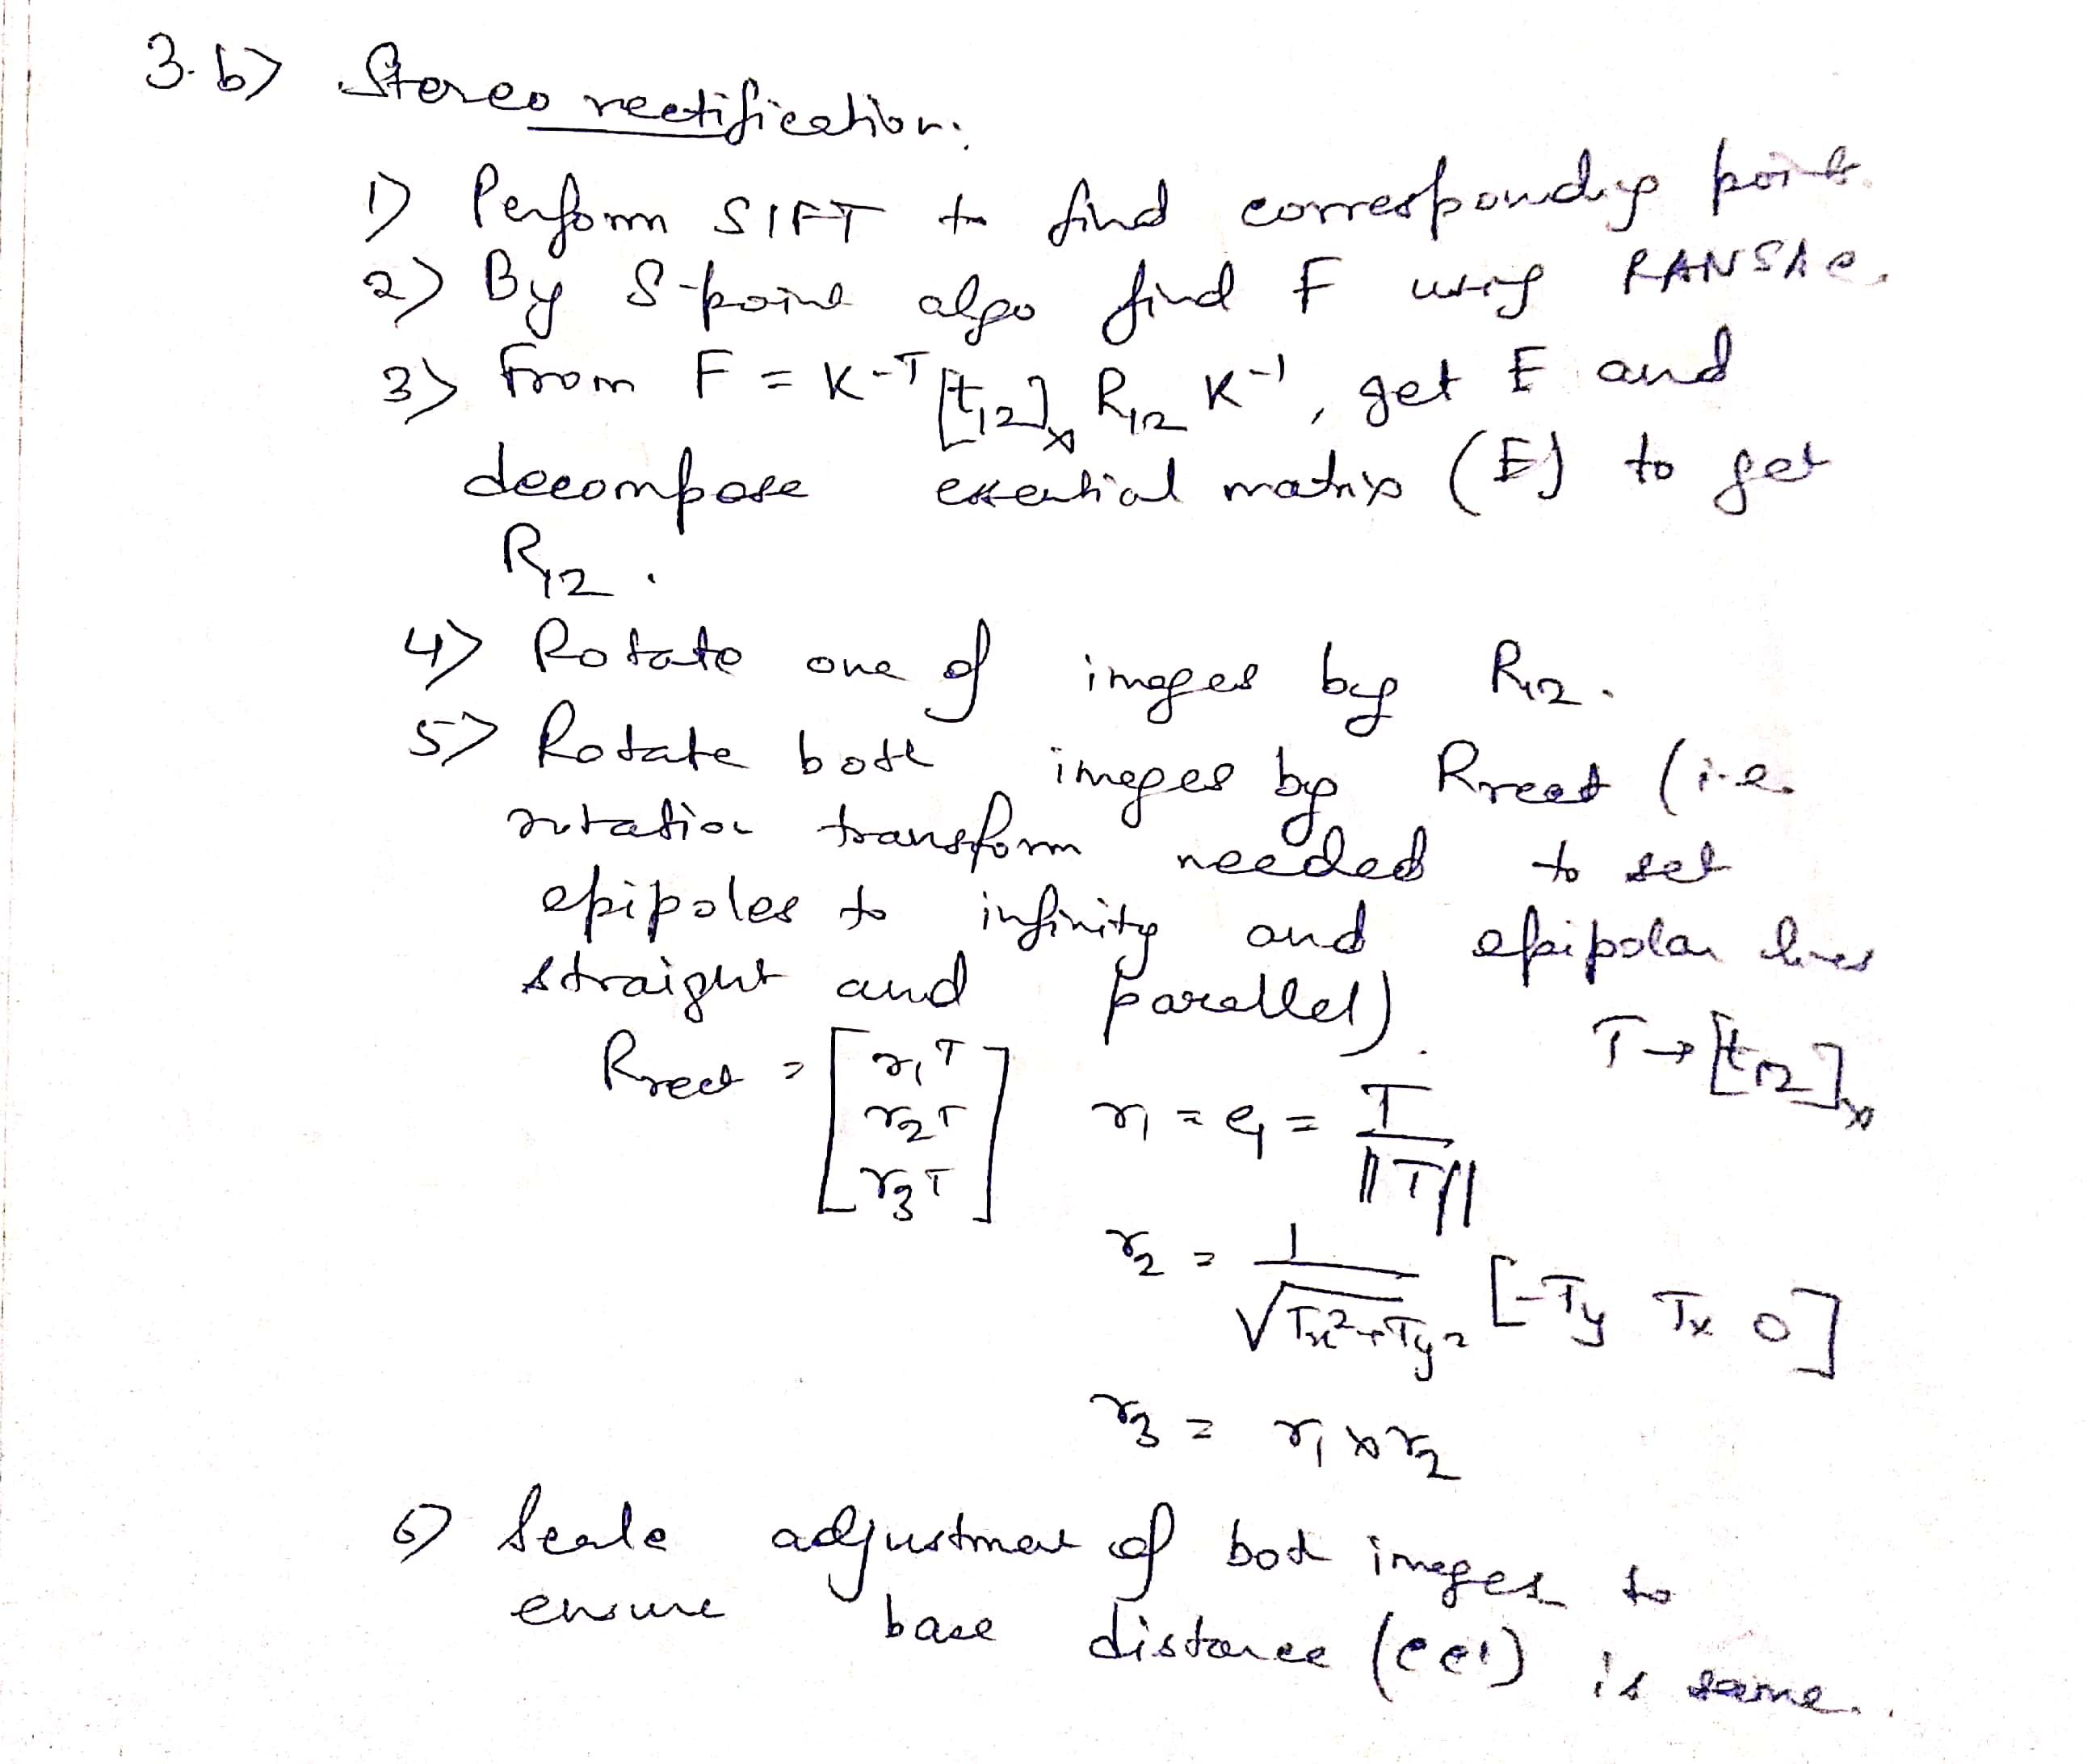 3.b) Stereo rectification:
1) Perform SIFT to find corresponding points.
2) By 8-point algo find F using RANSAC.
3) From F = K^-T [t12]x R12 K^-1, get E and
decompose essential matrix (E) to get
R12.
4) Rotate one of images by R12.
5) Rotate both images by Rrect (i.e.
rotation transform needed to set
epipoles to infinity and epipolar lines
straight and parallel).
T → [t12]x
Rrect = [r1^T r2^T r3^T]
r1 = e1 = T / ||T||
r2 = 1 / √(Tx^2+Ty^2) [-Ty Tx 0]
r3 = r1 x r2
6) Scale adjustment of both images to
ensure base distance (cc') is same.